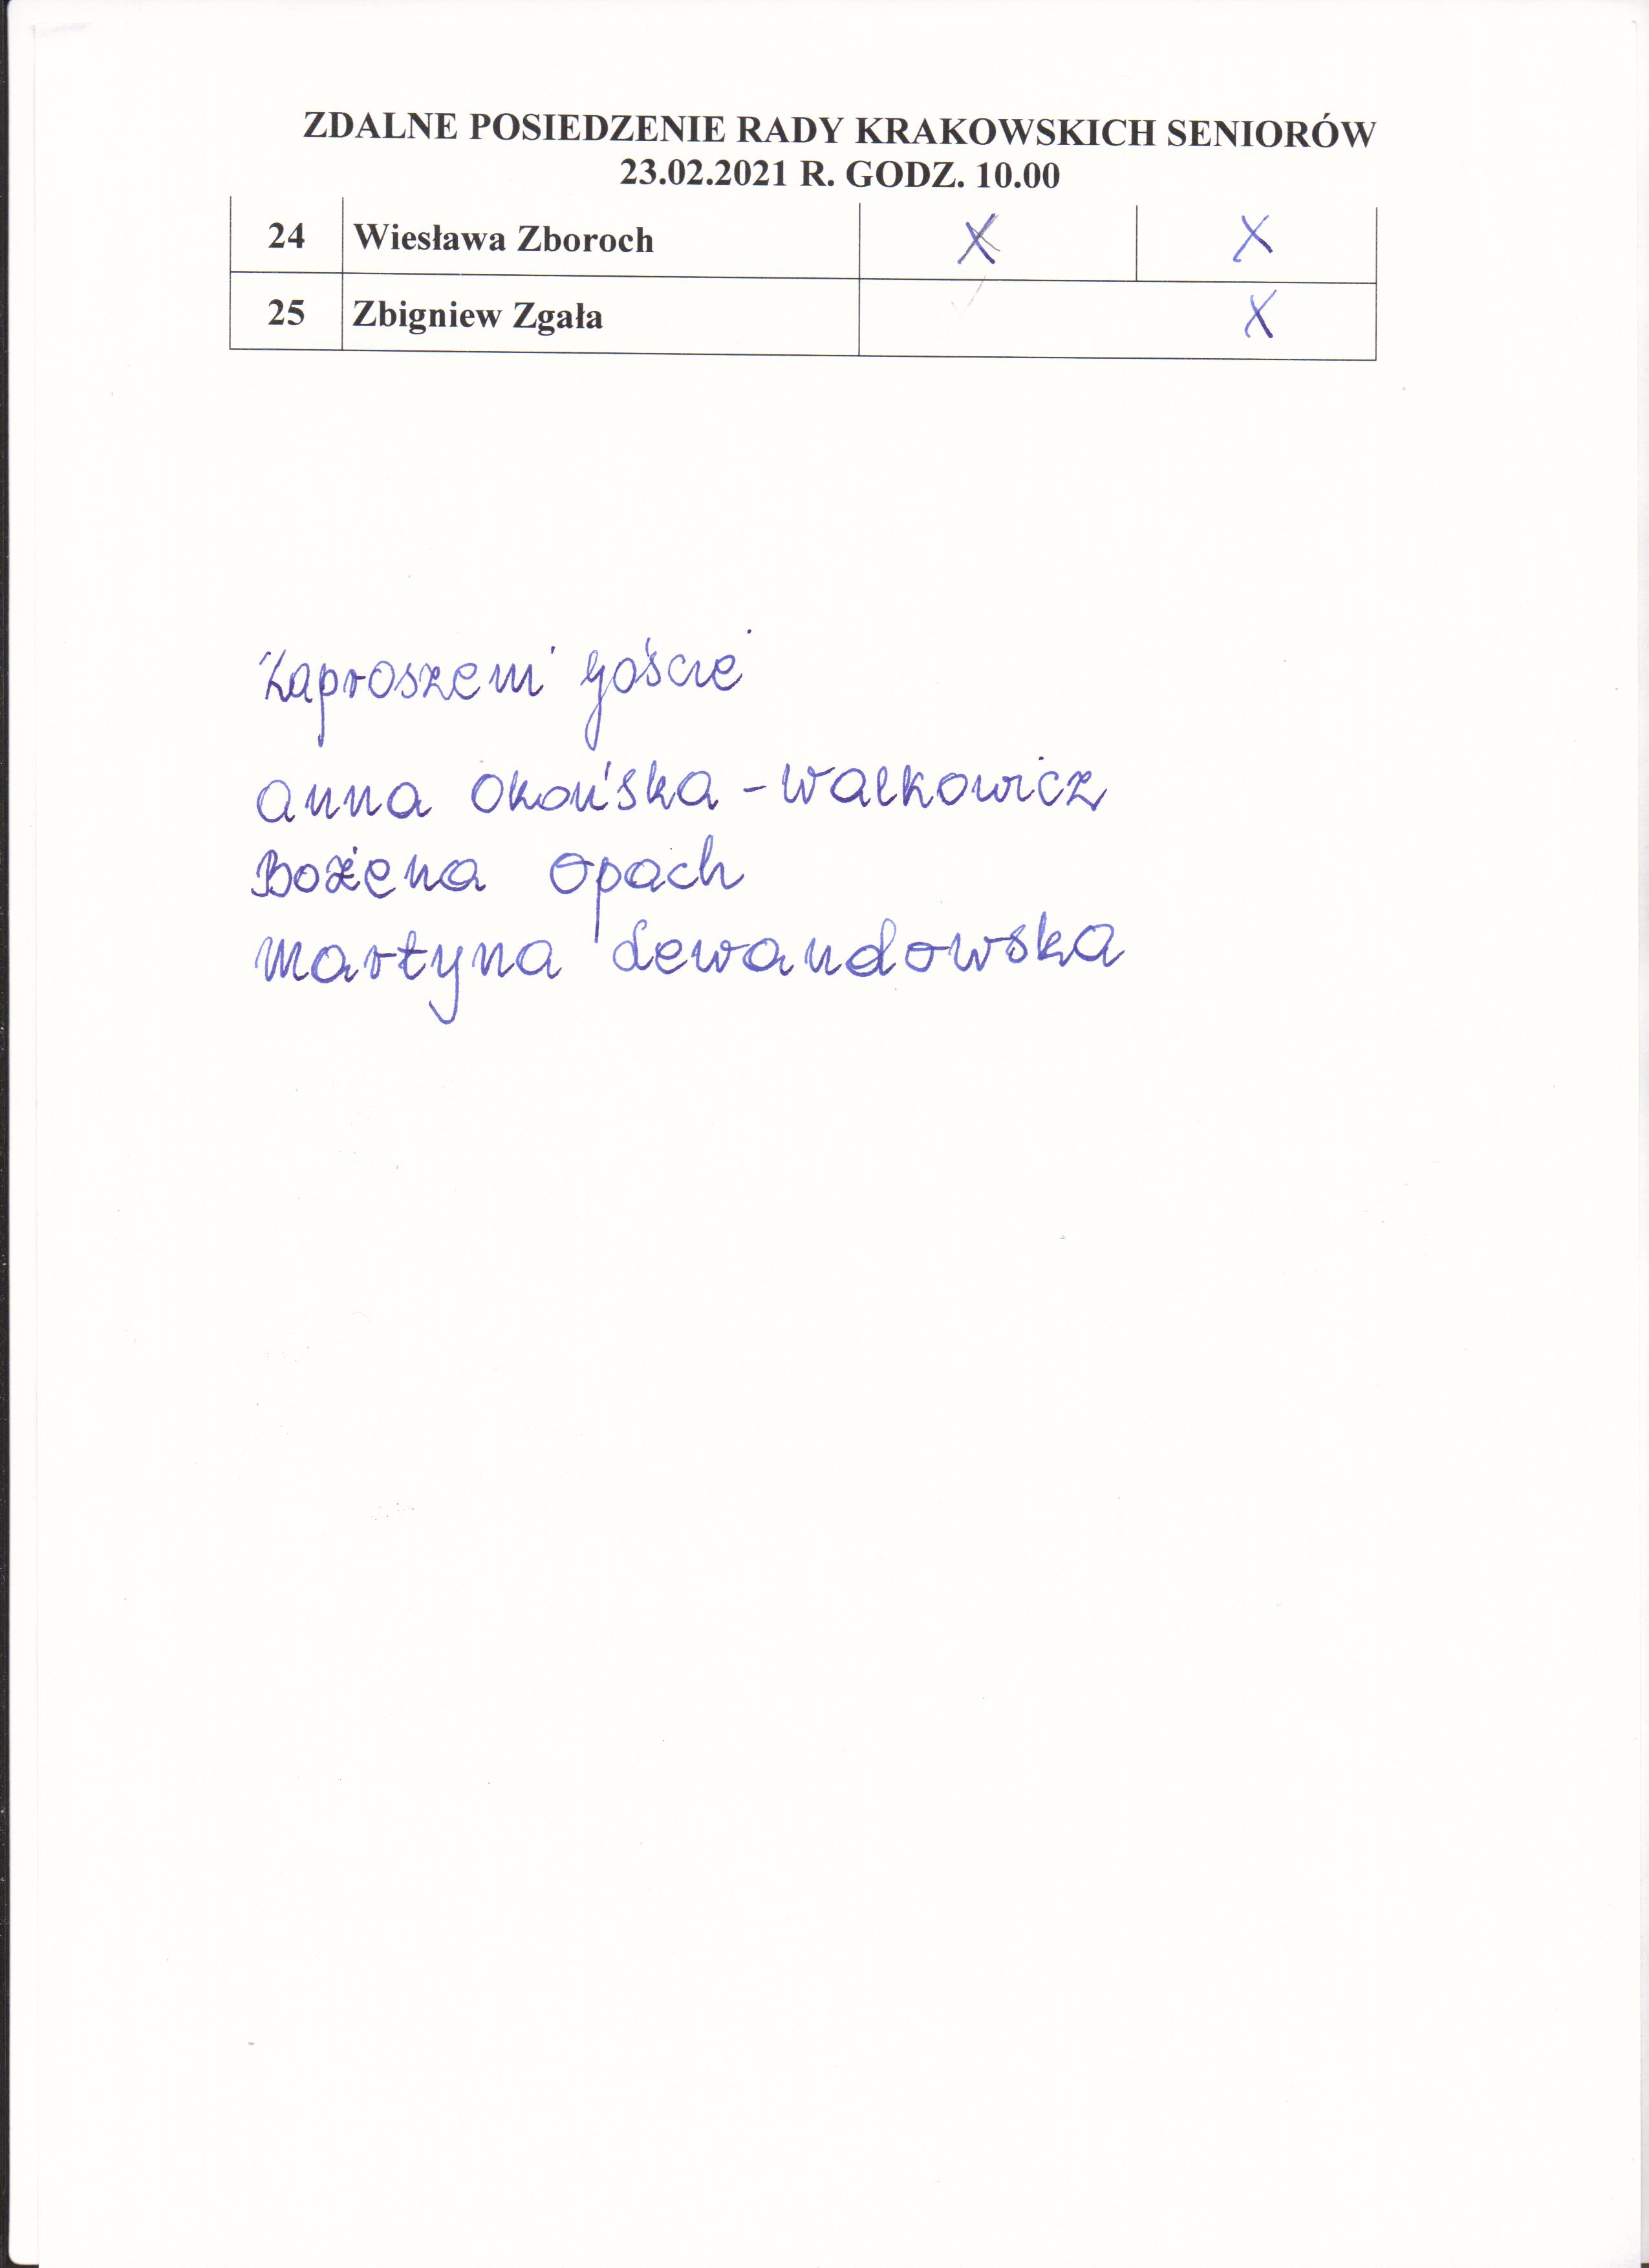 ZDALNE POSIEDZENIE RADY KRAKOWSKICH SENIORÓW
23.02.2021 R. GODZ. 10.00
24 Wiesława Zboroch X X
25 Zbigniew Zgała X
Zaproszeni goście
Anna Okońska-Walkowicz
Bożena Opach
Martyna Lewandowska